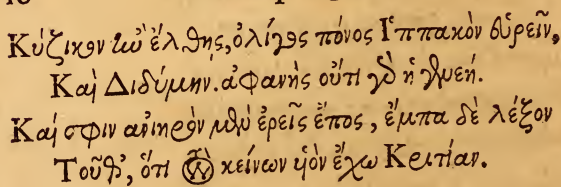 Κύζικον ἢν ἔλθης, ὀλίγος πόνος Ἱππακὸν εὑρεῖν,
Καὶ Διδύμην. ἀφανὴς οὔτι γὰρ ἡ γενεή.
Καί σφιν ἀνιηρὸν μὲν ἐρεῖς ἔπος, ἔμπα δὲ λέξον
Τοῦθ', ὅτι τῶν κείνων υἱὸν ἔχω Κριτίαν.